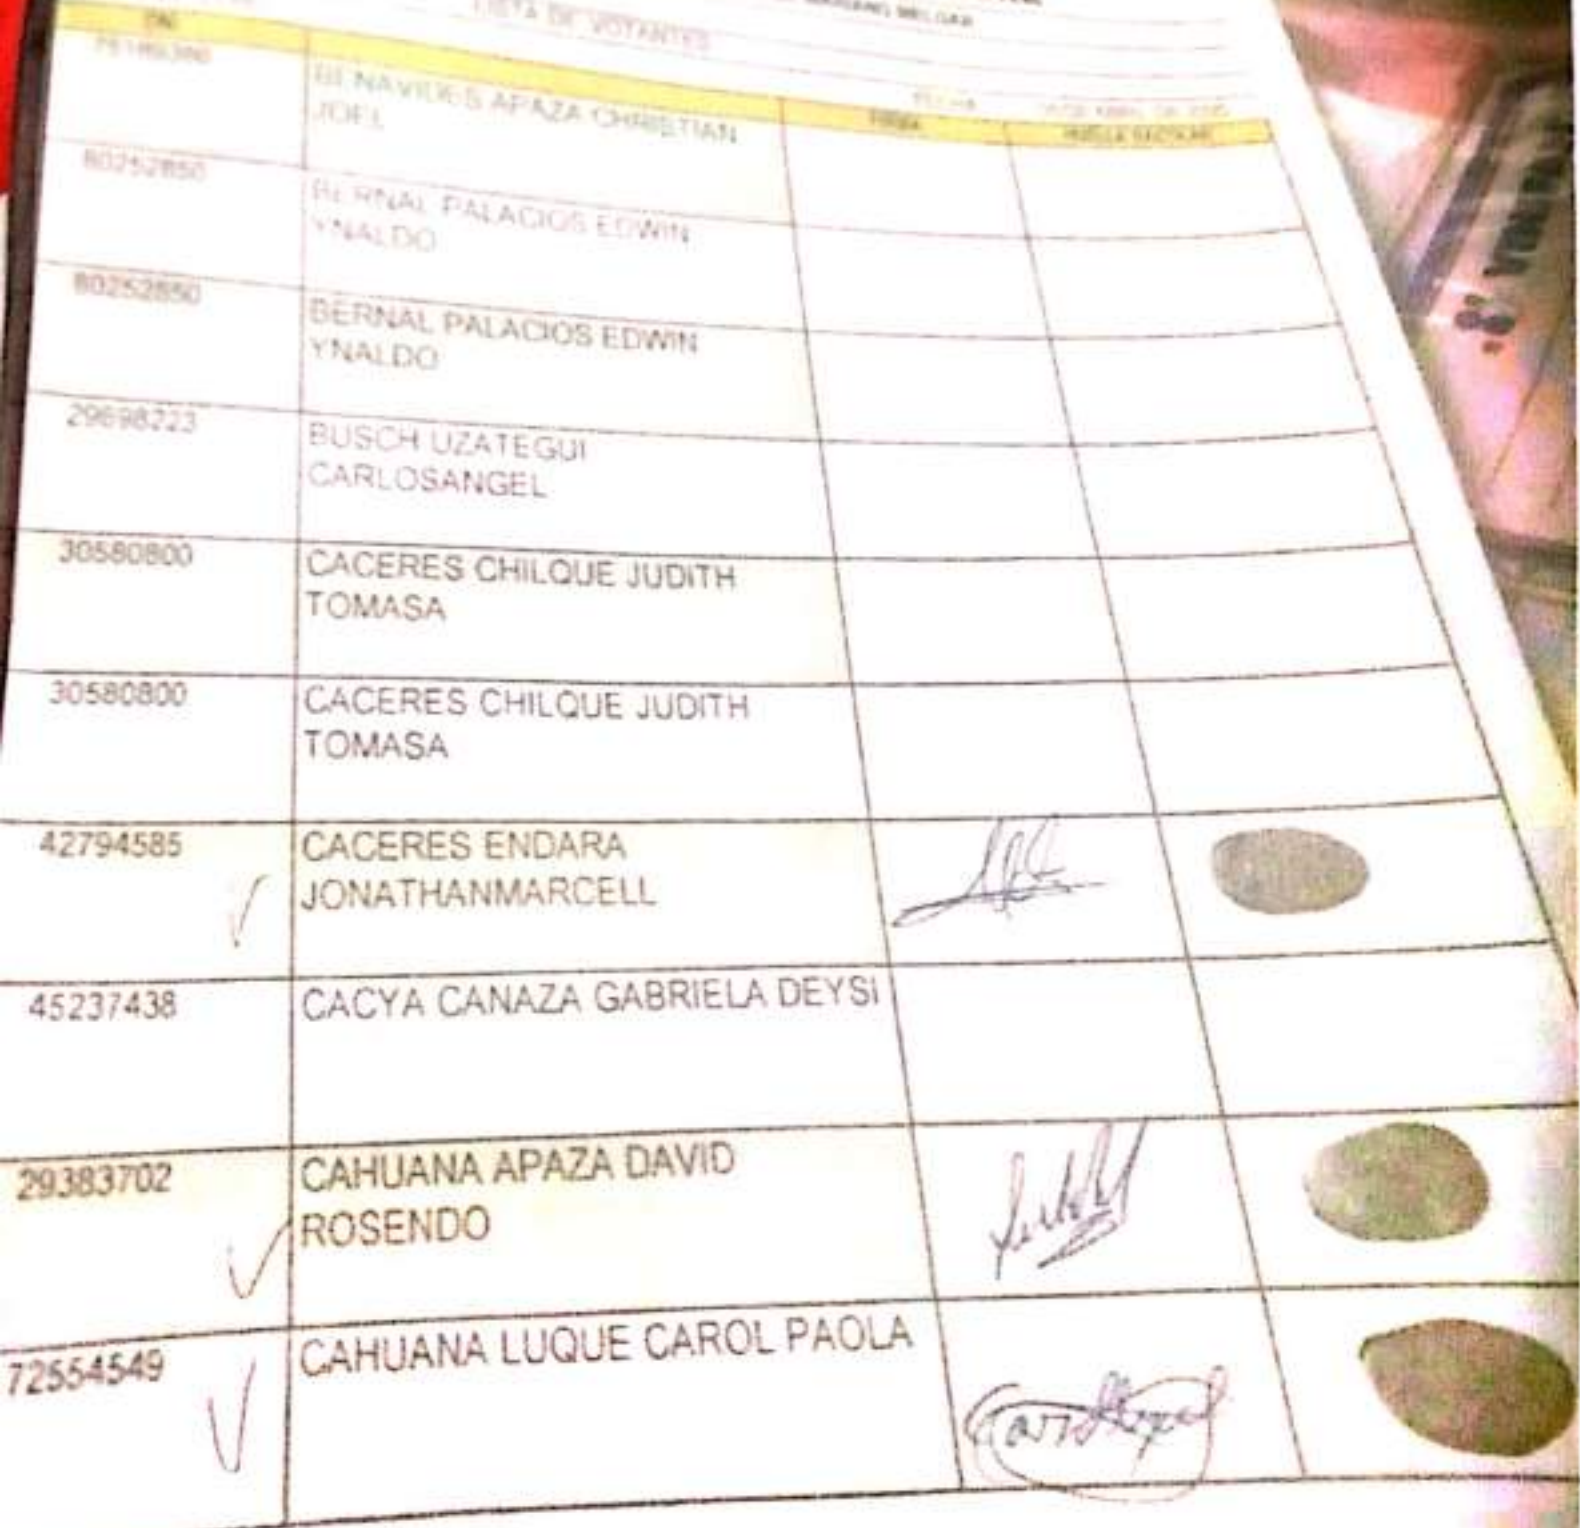 MARIANO MELGAR
LISTA DE VOTANTES
FECHA
DNI
FIRMA
HUELLA DACTILAR
BENAVIDES APAZA CHRISTIAN
JOEL
80252850
BERNAL PALACIOS EDWIN
YNALDO
80252850
BERNAL PALACIOS EDWIN
YNALDO
29698223
BUSCH UZATEGUI
CARLOSANGEL
30580800
CACERES CHILQUE JUDITH
TOMASA
30580800
CACERES CHILQUE JUDITH
TOMASA
42794585
CACERES ENDARA
JONATHANMARCELL
45237438
CACYA CANAZA GABRIELA DEYSI
29383702
CAHUANA APAZA DAVID
ROSENDO
72554549
CAHUANA LUQUE CAROL PAOLA